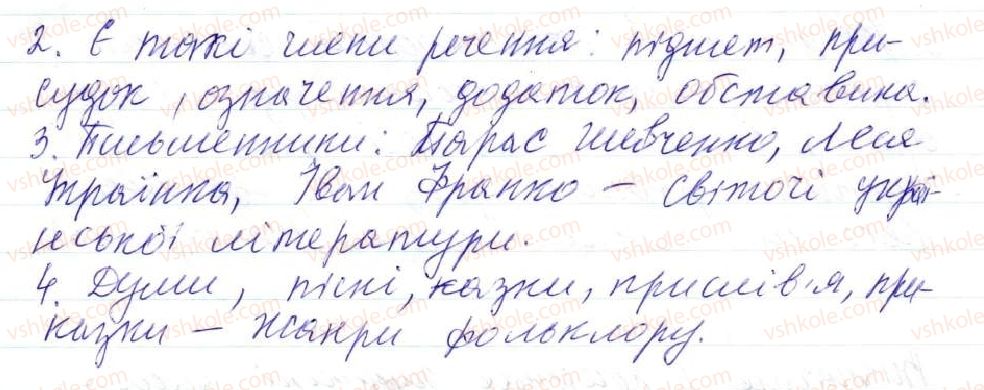 2. Є такі члени речення: підмет, при-
судок, означення, додаток, обставина.
3. Письменники: Тарас Шевченко, Леся
Українка, Іван Франко – світочі украї-
нської літератури.
4. Думи, пісні, казки, прислів'я, при-
казки – жанри фольклору.